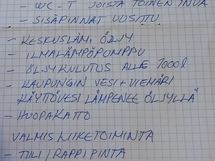 - WC-T JOISTA TOINEN INVA
- SISÄPINNAT UUSITTU
- KESKUSLÄM. ÖLJY
- ILMALÄMPÖPUMPPU
- ÖLJYKULUTUS ALLE 1000 l
- KAUPUNGIN VESI + VIEMÄRI
KÄYTTÖVESI LÄMPENEE ÖLJYLLÄ
- HUOPAKATTO
VALMIS LIIKETOIMINTA
- TIILI/RAPPIPINTA